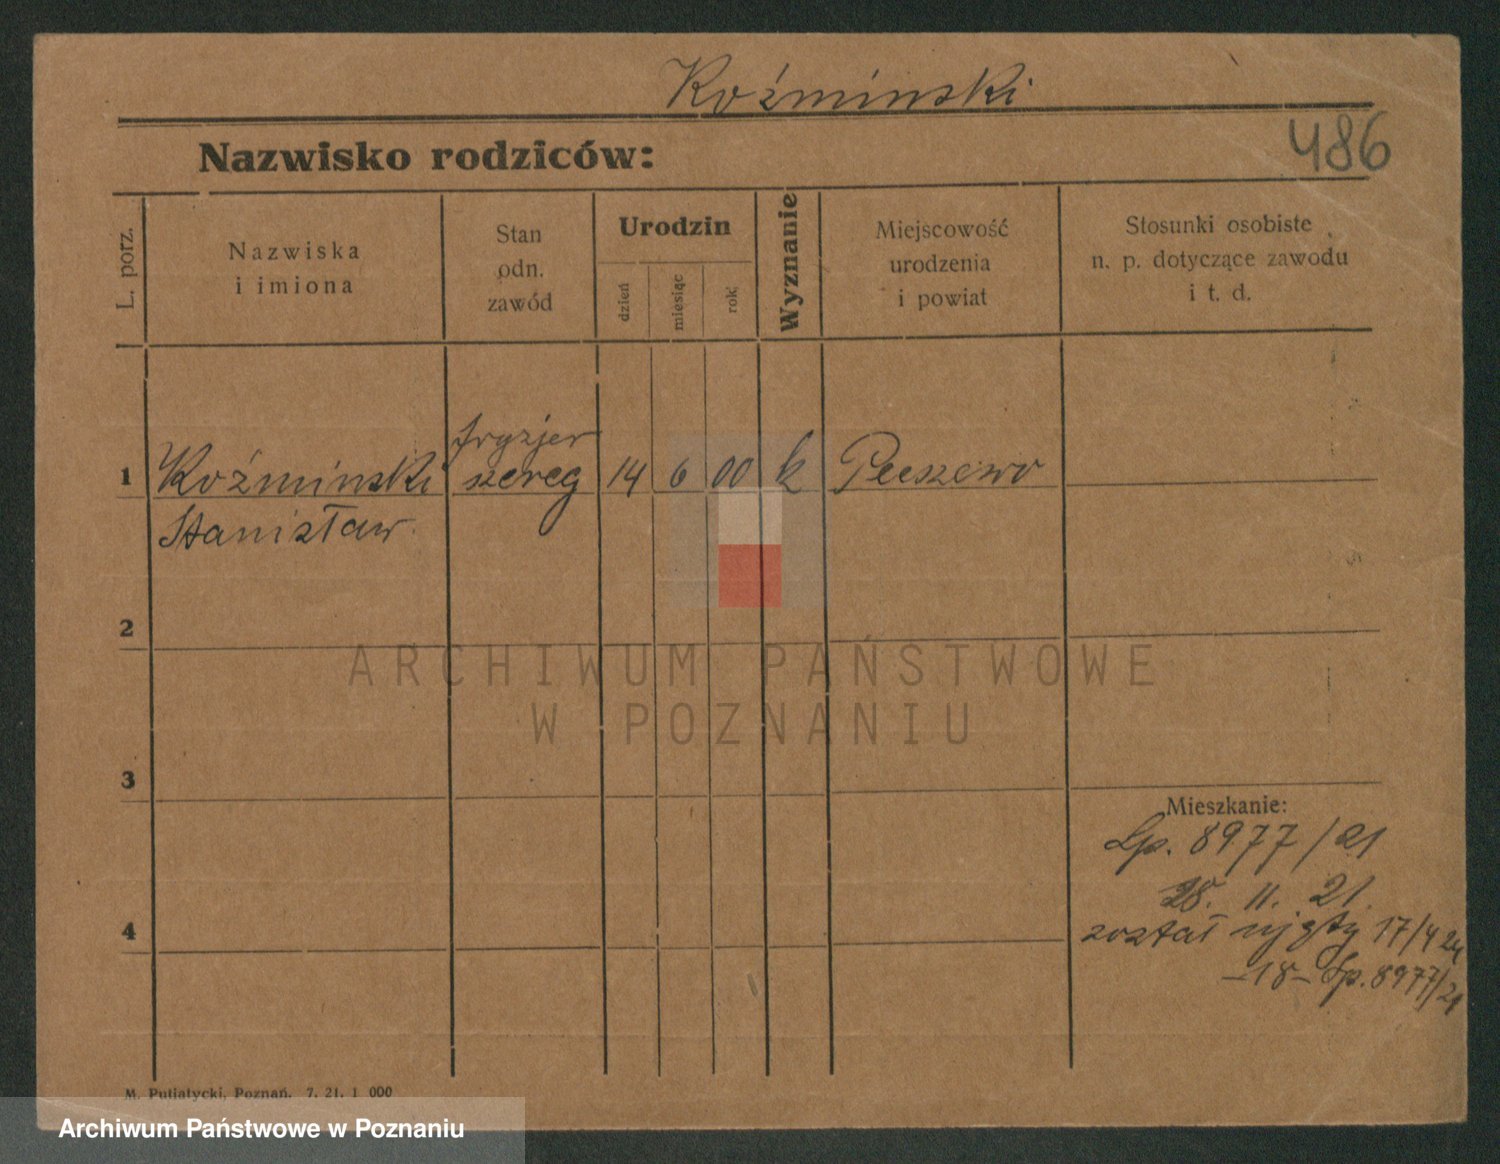 Koźminski
Nazwisko rodziców:
486
L. porz.
Nazwiska
i imiona
Stan
odn.
zawód
Urodzin
dzień
miesiąc
rok
Wyznanie
Miejscowość
urodzenia
i powiat
Stosunki osobiste
n. p. dotyczące zawodu
i t. d.
fryzjer
1 Koźminski szereg 14 6 00 k
Stanisław
2
ARCHIWUM PAŃSTWOWE
W POZNANIU
3
Mieszkanie:
Lp. 8977/21
28. 11. 21.
4
został ujęty 17/4 24
-18- Lp. 8977/21
M. Putiatycki, Poznań. 7. 21. 1 000
Archiwum Państwowe w Poznaniu